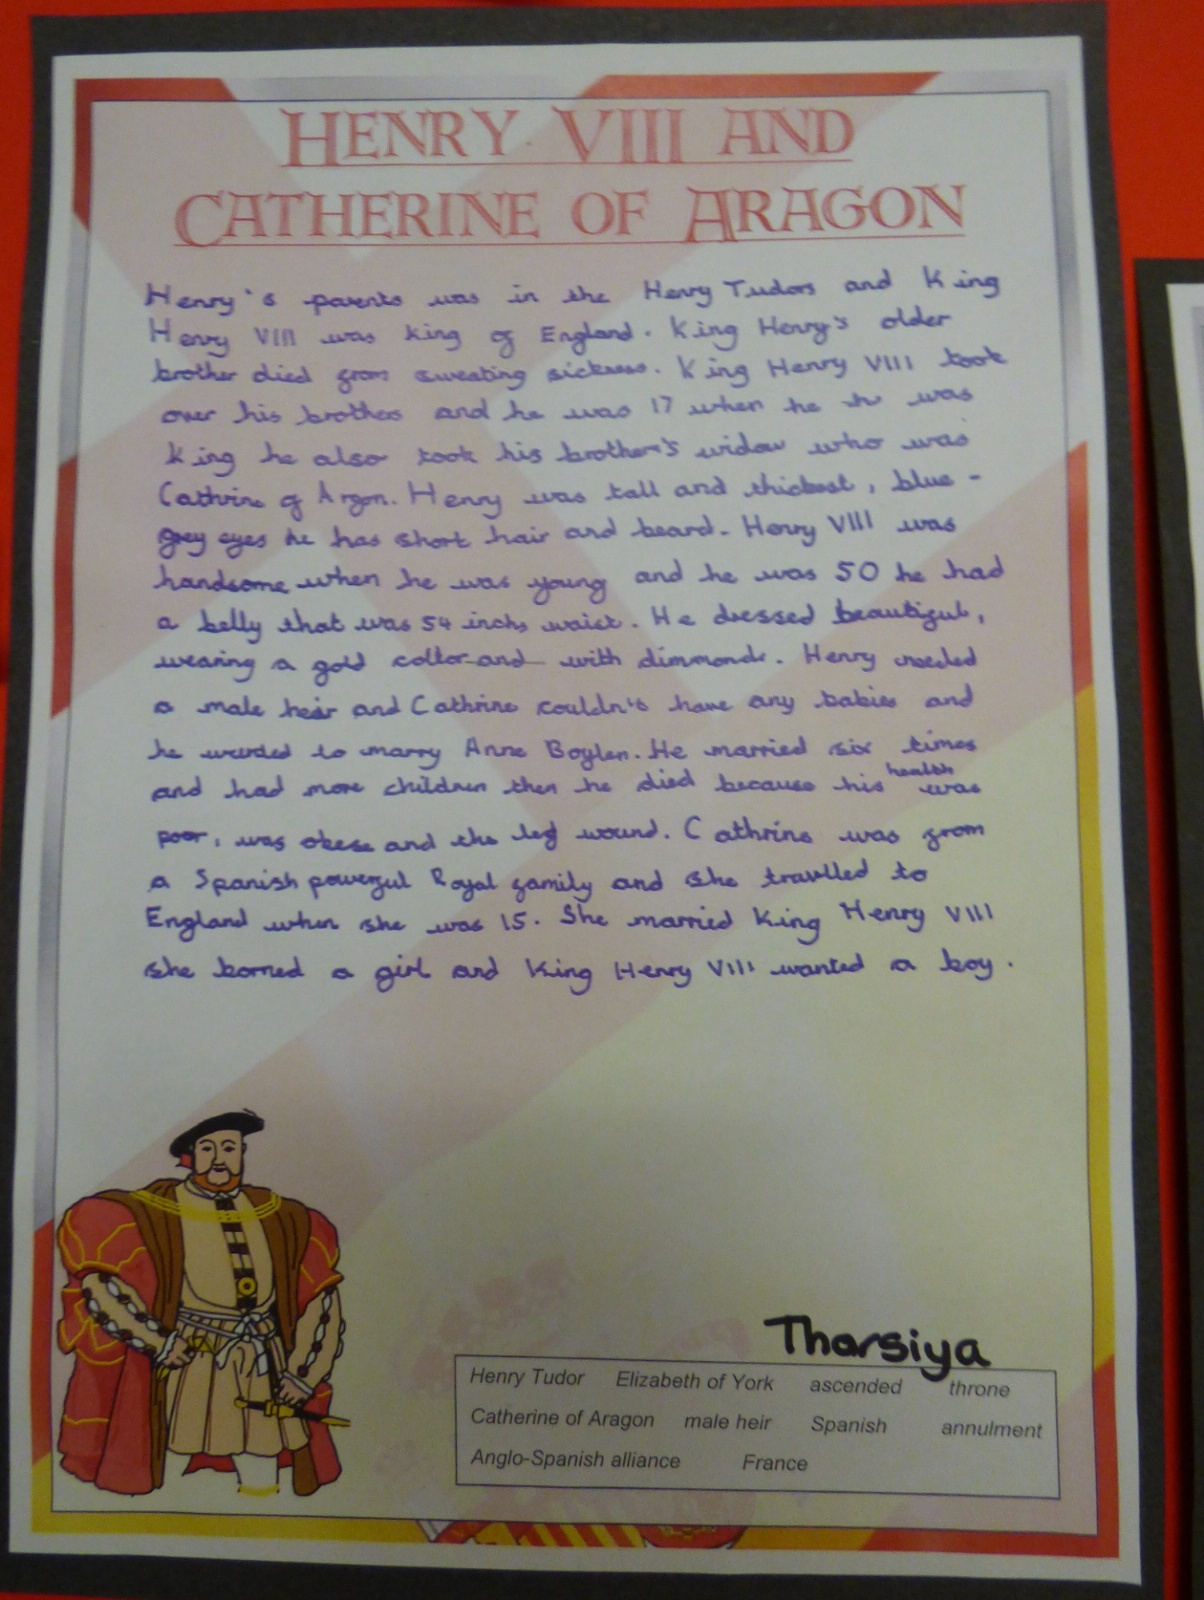 HENRY VIII AND
CATHERINE OF ARAGON
Henry's parents was in the Henry Tudors and King
Henry VIII was king of England. King Henry's older
brother died from sweating sickness. King Henry VIII took
over his brothers and he was 17 when he was
king he also took his brother's widow who was
Cathrine of Argon. Henry was tall and thickest, blue-
grey eyes he has short hair and beard. Henry VIII was
handsome when he was young and he was 50 he had
a belly that was 54 inchs waist. He dressed beautiful,
wearing a gold collor and with dimmonds. Henry needed
a male heir and Cathrine couldn't have any babies and
he wanted to marry Anne Boylen. He married six times
and had more children then he died because his health was
poor, was obese and the leg wound. Cathrine was from
a Spanish powerful Royal family and she travlled to
England when she was 15. She married King Henry VIII
she borned a girl and King Henry VIII wanted a boy.
Tharsiya
Henry Tudor Elizabeth of York ascended throne
Catherine of Aragon male heir Spanish annulment
Anglo-Spanish alliance France